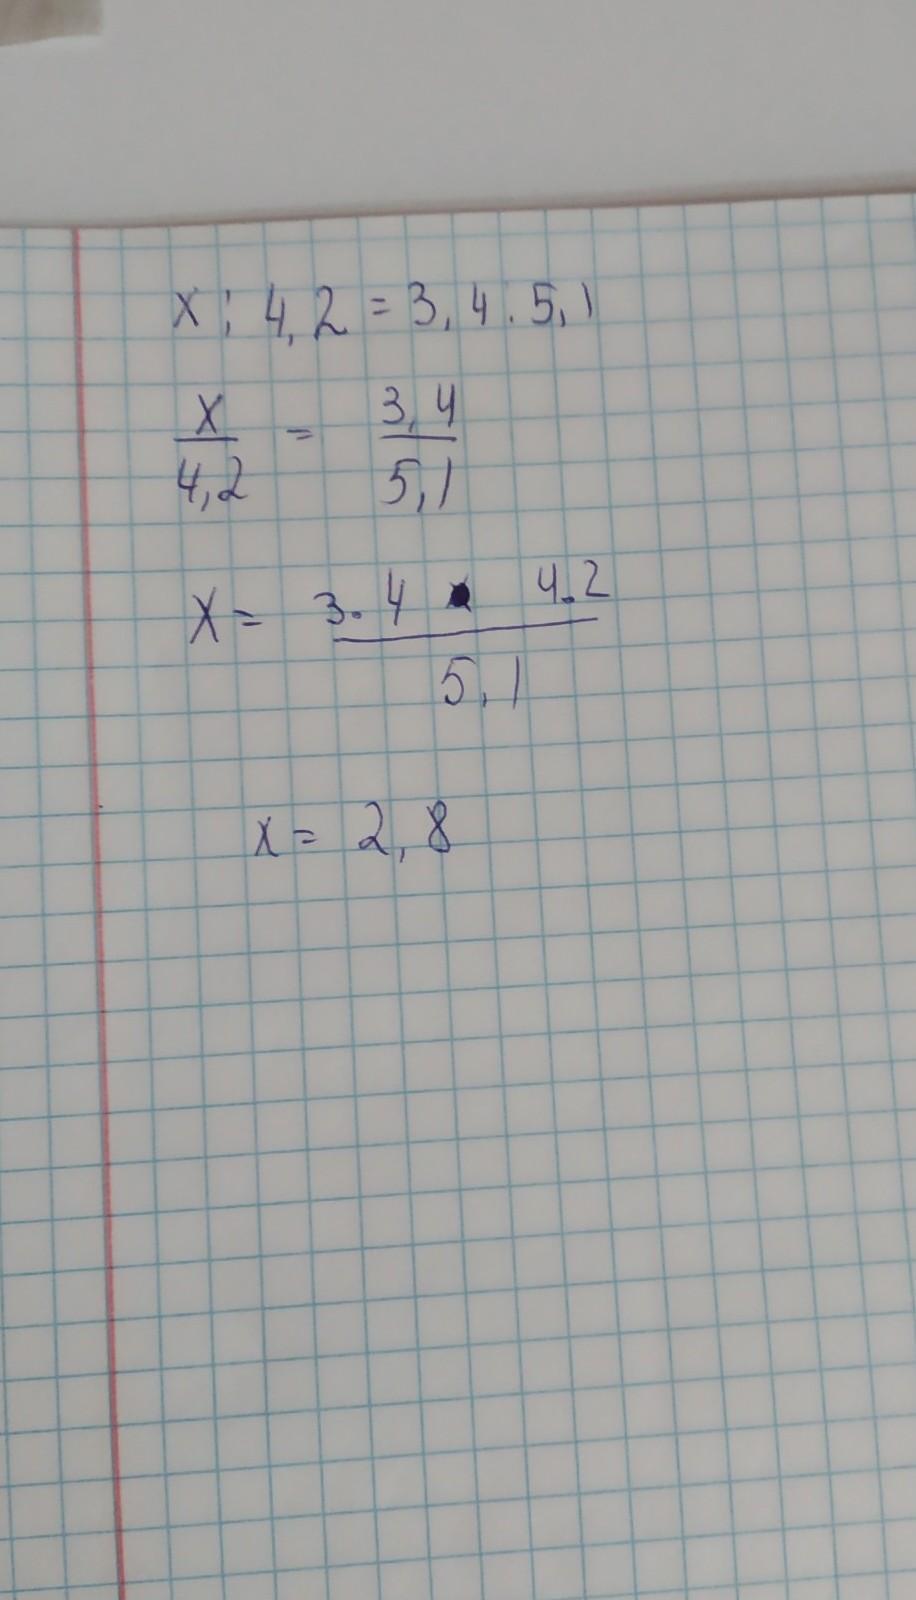 x : 4,2 = 3,4 : 5,1
x/4,2 = 3,4/5,1
x = 3.4 • 4.2/5,1
x = 2,8